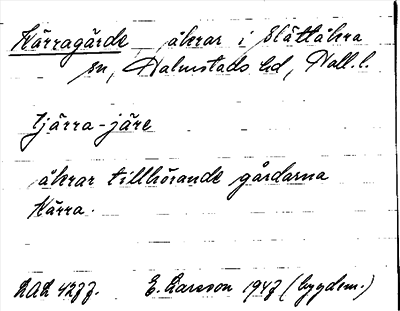 Kärragärde åkrar i Slättåkra
sn, Halmstads hd, Hall. l.
tjärra-järe
åkrar tillhörande gårdarna
Kärra.
LAL 4277. E. Larsson 1947 (bygdem.)